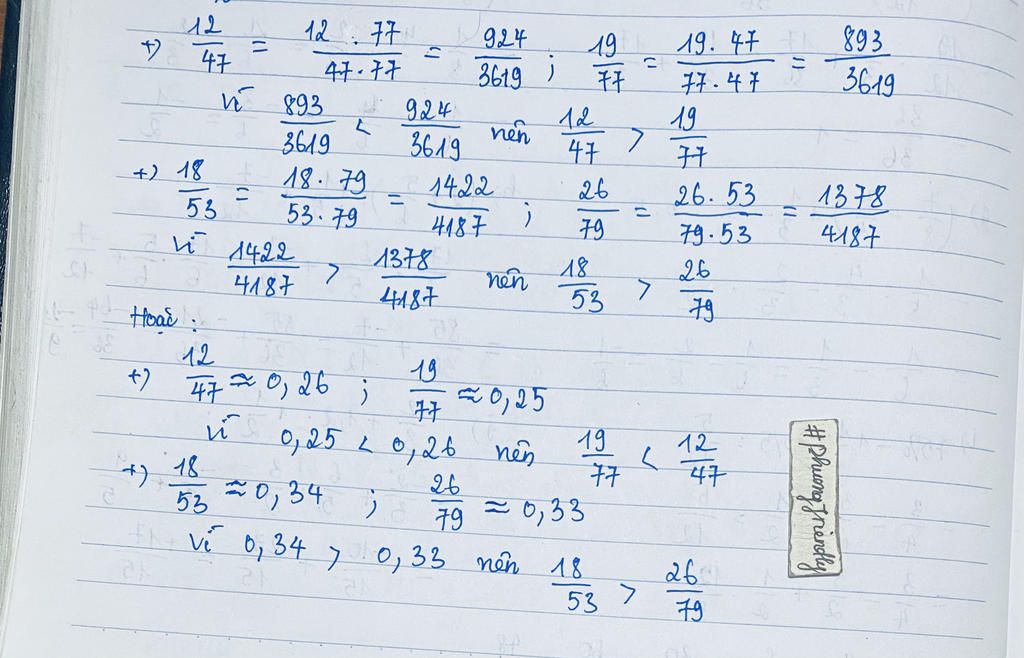 +) 12/47 = 12 . 77/47 . 77 = 924/3619 ; 19/77 = 19 . 47/77 . 47 = 893/3619
Vì 893/3619 < 924/3619 nên 12/47 > 19/77
+) 18/53 = 18 . 79/53 . 79 = 1422/4187 ; 26/79 = 26 . 53/79 . 53 = 1378/4187
Vì 1422/4187 > 1378/4187 nên 18/53 > 26/79
Hoặc :
+) 12/47 ≈ 0,26 ; 19/77 ≈ 0,25
Vì 0,25 < 0,26 nên 19/77 < 12/47
+) 18/53 ≈ 0,34 ; 26/79 ≈ 0,33
Vì 0,34 > 0,33 nên 18/53 > 26/79
#phuongfriendly